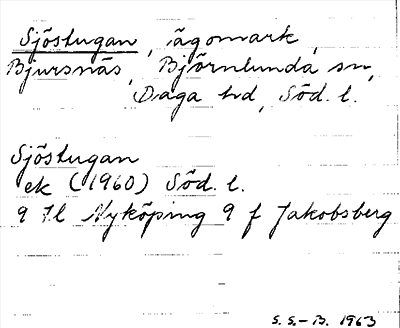 Sjöstugan, ägomark,
Bjursnäs, Björnlunda sn,
Daga hd, Söd. l.
Sjöstugan
ek (1960) Söd. l.
9 H Nyköping 9 f Jakobsberg
S. S.-B. 1963